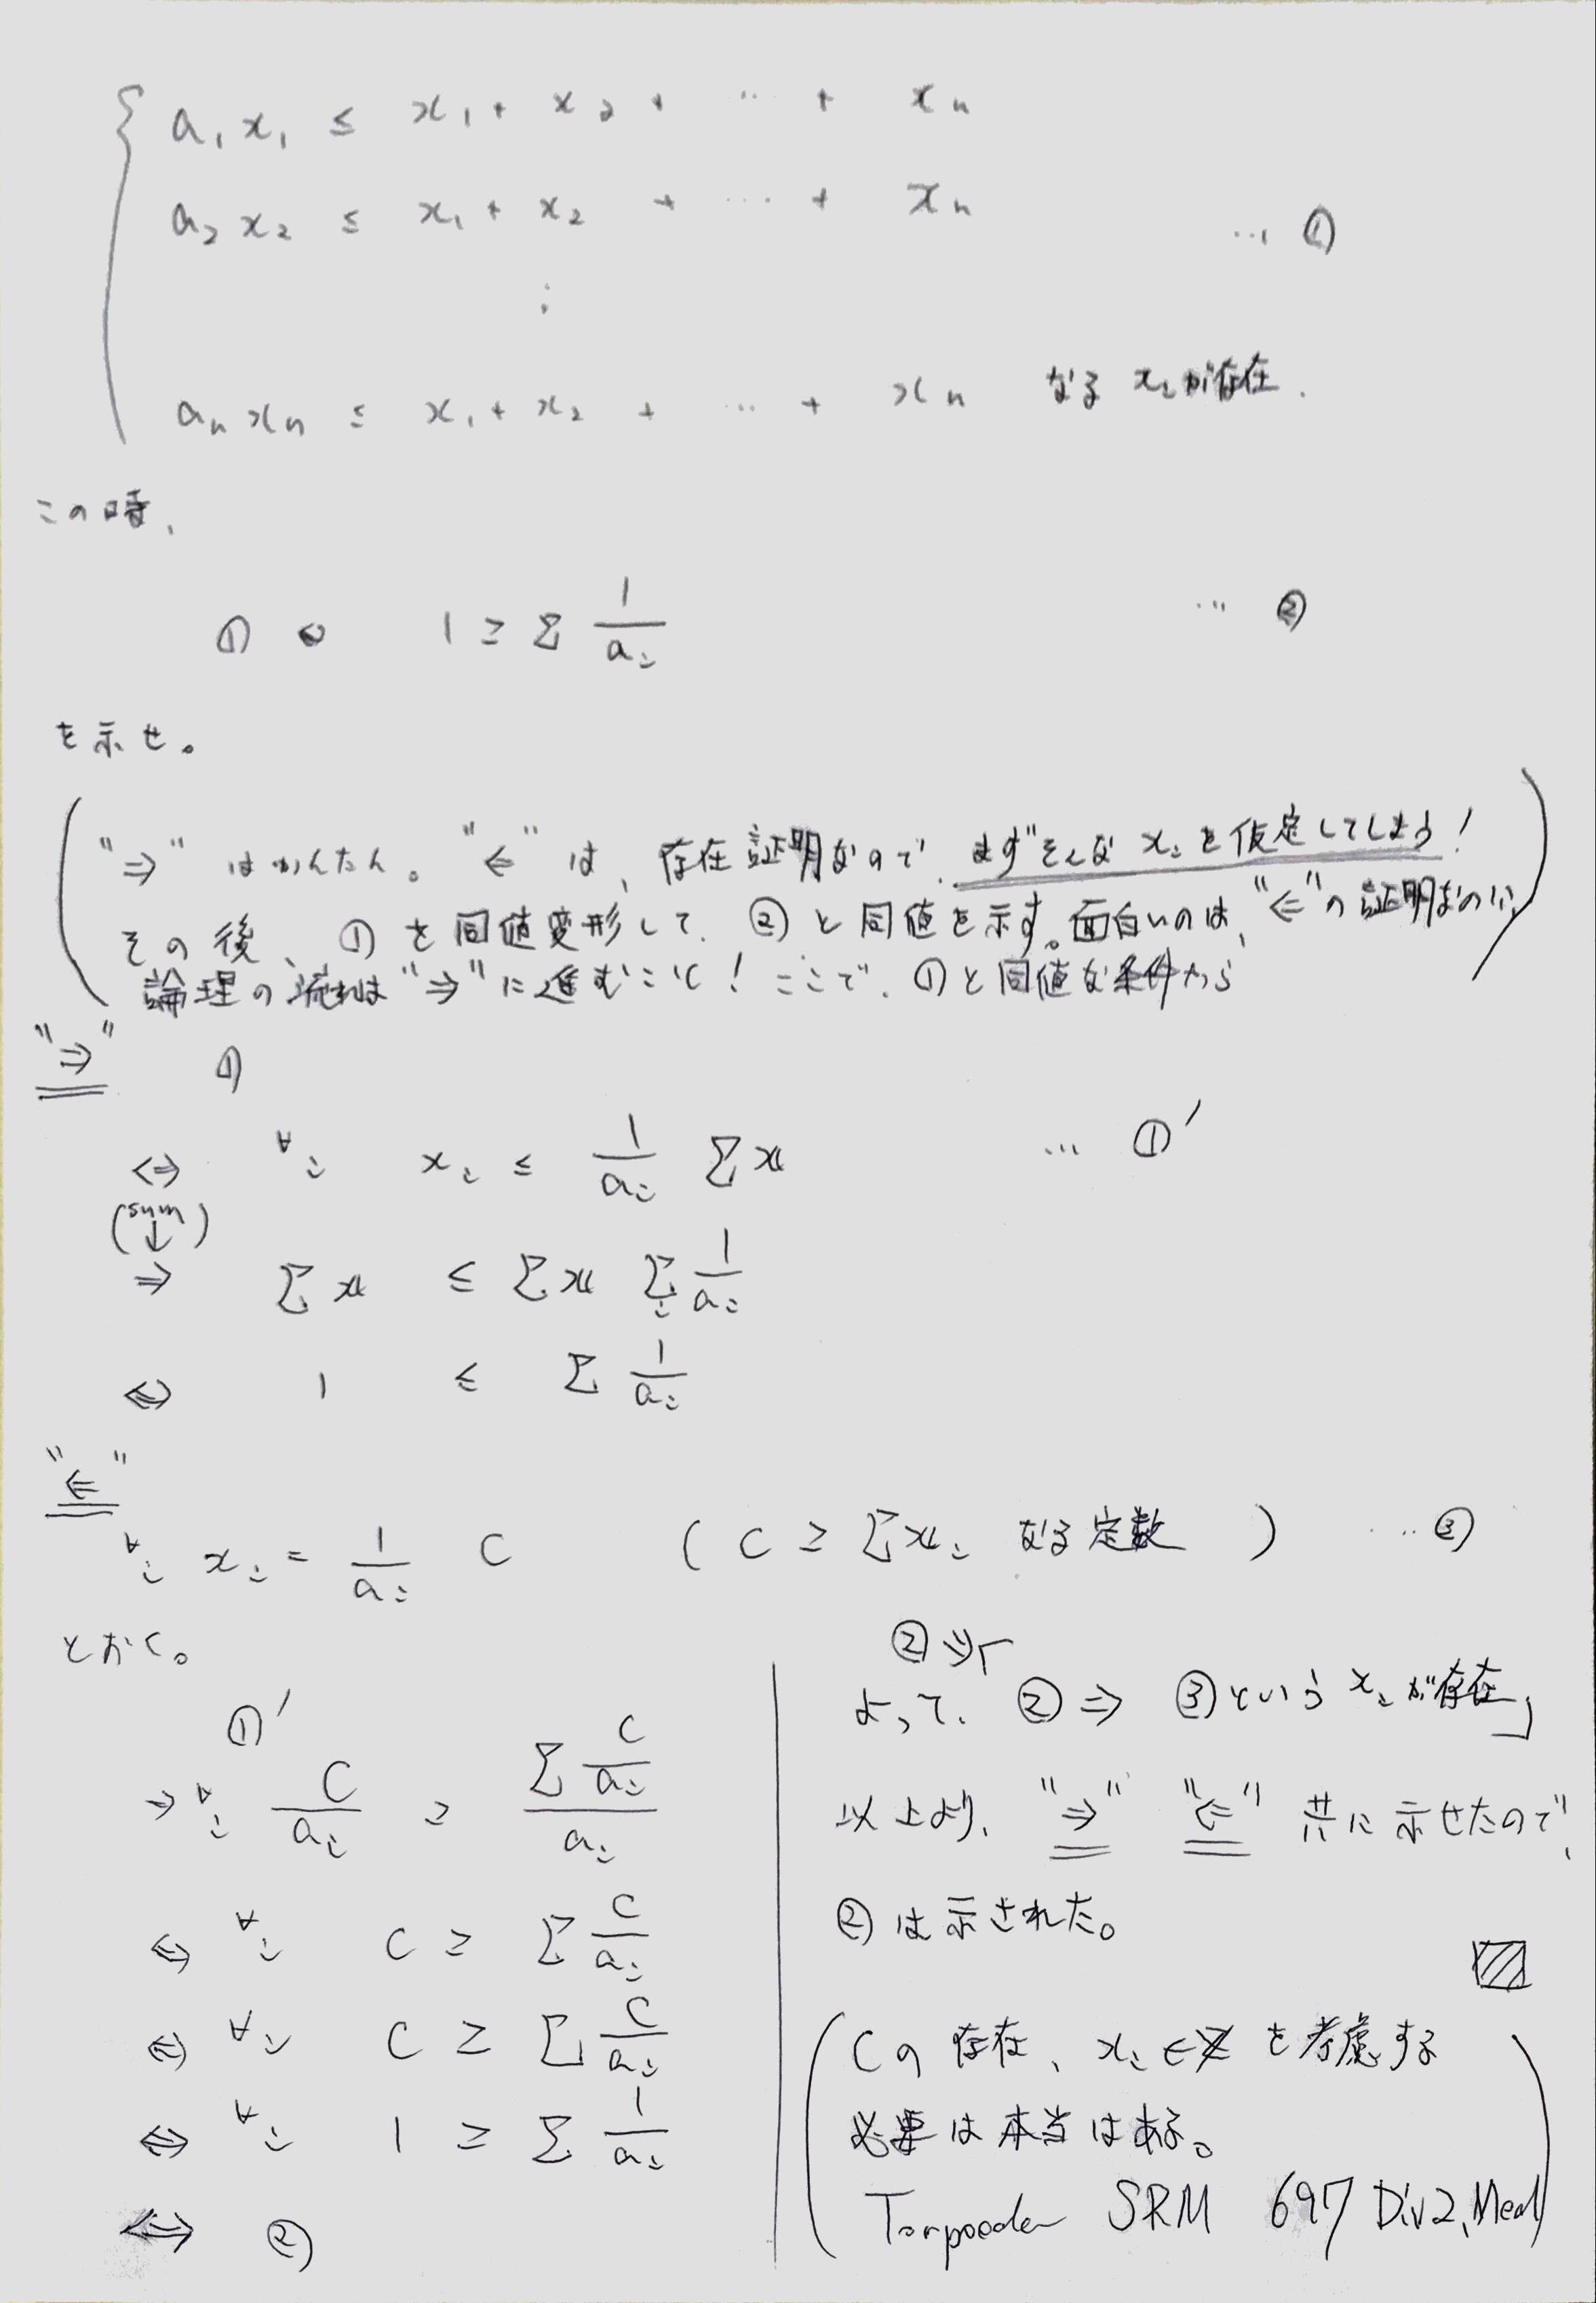 a₁x₁ ≤ x₁ + x₂ + … + xₙ
a₂x₂ ≤ x₁ + x₂ + … + xₙ … ①
⋮
aₙxₙ ≤ x₁ + x₂ + … + xₙ なる xᵢが存在.
この時、
① ⇔ 1 ≥ Σ 1/aᵢ … ②
を示せ。
"⇒" はかんたん。"⇐" は、存在証明なので、まずそんな xᵢ を仮定してしまう!
その後、① を同値変形して、② と同値を示す。面白いのは、"⇐"の証明なのに、
論理の流れは"⇒"に進むこと! ここで、①と同値な条件から
"⇒" ①
⇔ ∀i xᵢ ≤ 1/aᵢ Σx … ①'
(sum ↓)
⇒ Σx ≤ Σx Σᵢ 1/aᵢ
⇔ 1 ≤ Σ 1/aᵢ
"⇐"
∀i xᵢ = 1/aᵢ C ( C ≥ Σxᵢ なる定数 ) … ③
とおく。
①'
⇒ ∀i C/aᵢ ≥ (Σ C/aᵢ)/aᵢ
⇔ ∀i C ≥ Σ C/aᵢ
⇔ ∀i C ≥ Σ C/aᵢ
⇔ ∀i 1 ≥ Σ 1/aᵢ
⇔ ②
②
よって、② ⇒ ③という xᵢ が存在」
以上より、"⇒" "⇐" 共に示せたので、
② は示された。
Cの存在、xᵢ ∈ を考慮する
必要は本当はある。
SRM 697 Div2, Med